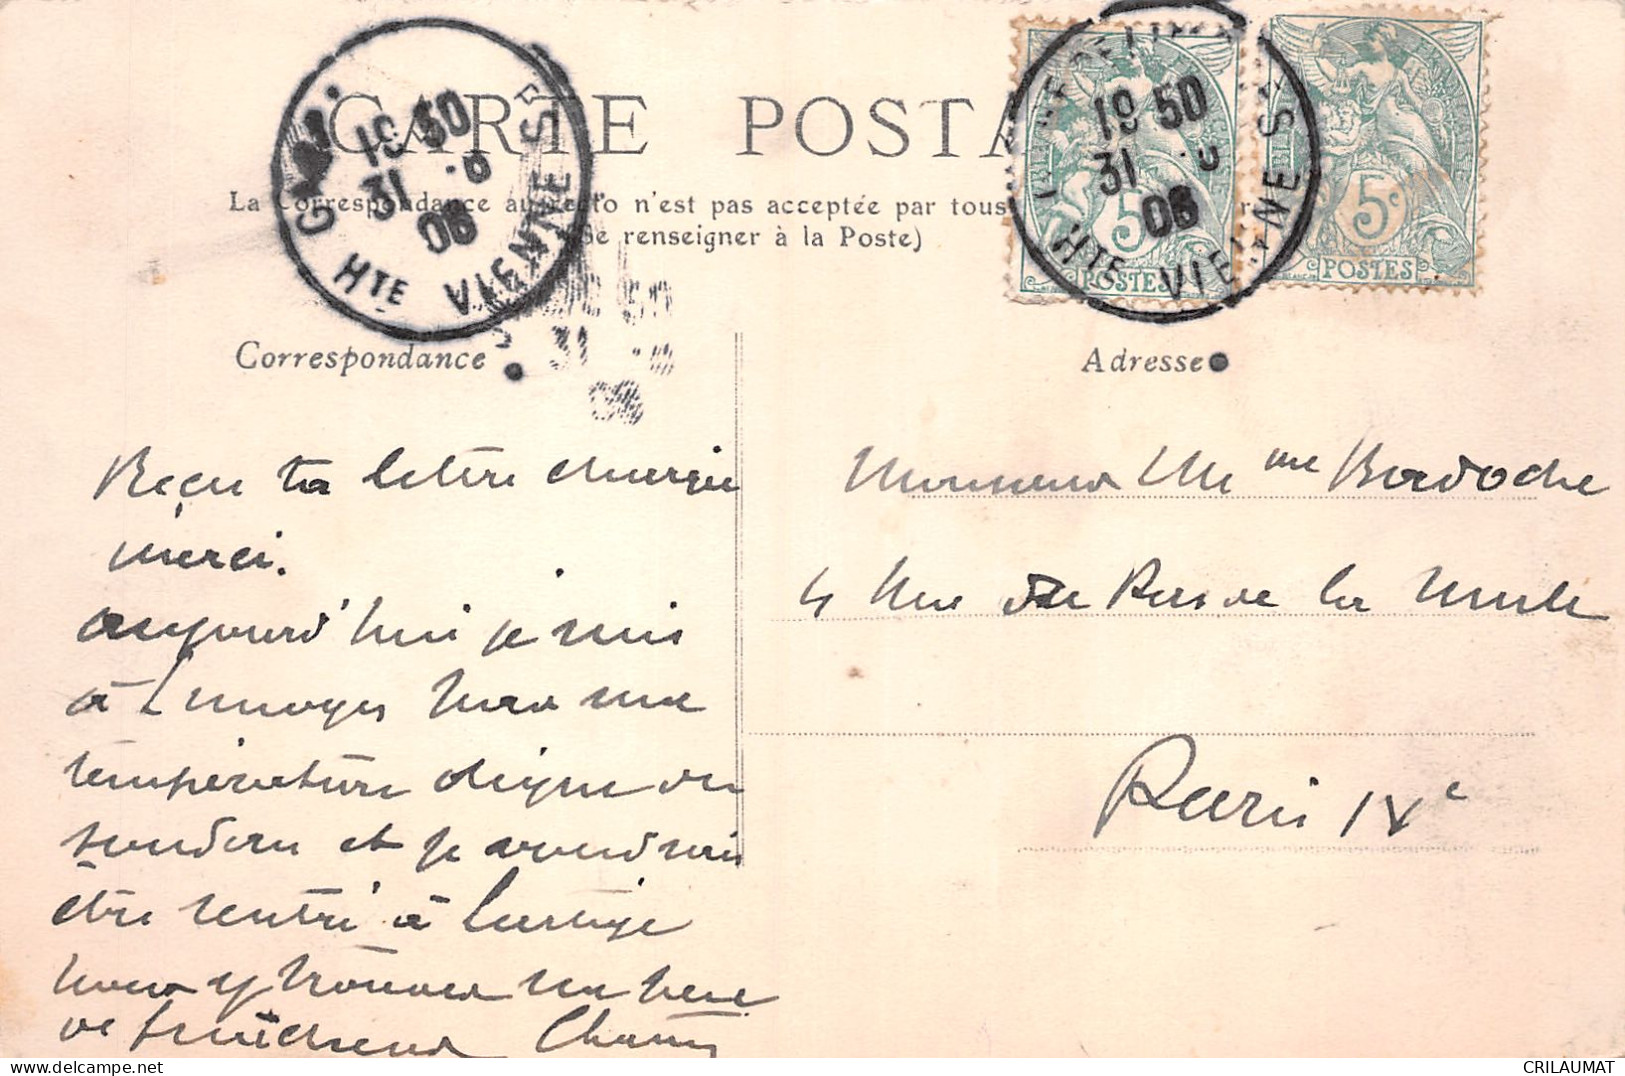 CARTE POSTA
La Correspondance au recto n'est pas acceptée par tous
(Se renseigner à la Poste)
GARE
19 50
31 -8
08
HTE VIENNE
19 50
31 -8
08
HTE VIENNE
5
POSTES
5c
POSTES
Correspondance
Adresse
Reçu ta lettre
merci.
aujourd'hui je suis
à Limoges par une
température digne du
soudan et je voudrais
être rentré à
pour y trouver un peu
de fraicheur
Monsieur Mme Bardoche
4 Rue de la
Paris IXe
CRILAUMAT